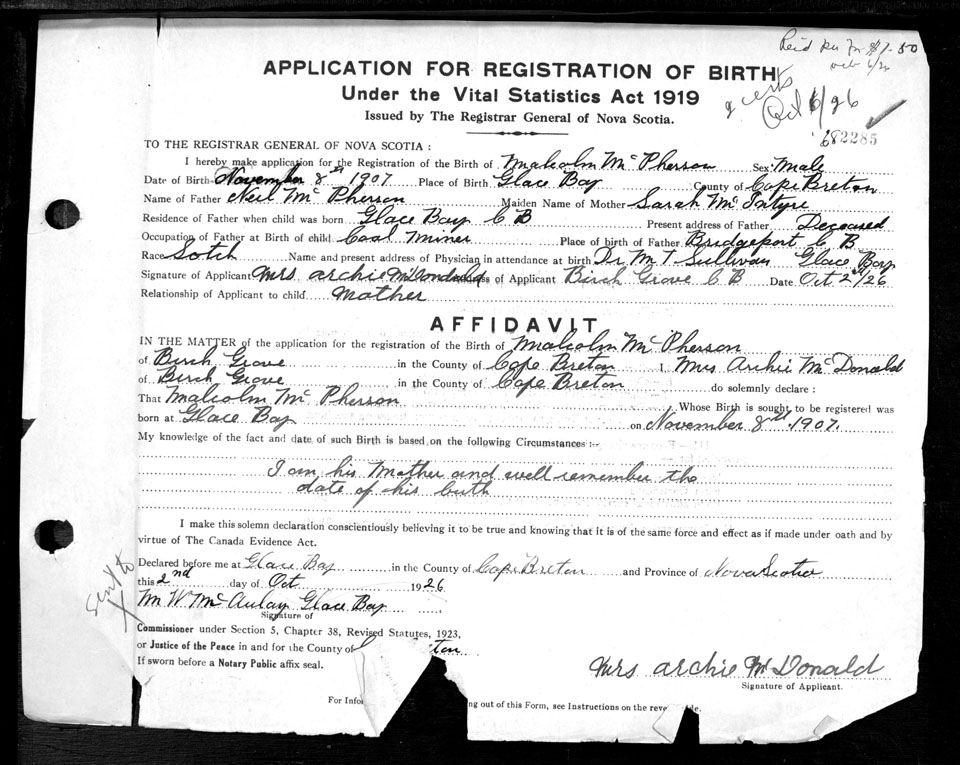 Reid $1.50
Oct 6/26
APPLICATION FOR REGISTRATION OF BIRTH
Under the Vital Statistics Act 1919
Issued by The Registrar General of Nova Scotia.
2 certs
Oct 6/26
682285
TO THE REGISTRAR GENERAL OF NOVA SCOTIA :
I hereby make application for the Registration of the Birth of Malcolm McPherson Sex Male
Date of Birth November 8th 1907 Place of Birth Glace Bay County of Cape Breton
Name of Father Neil McPherson Maiden Name of Mother Sarah McIntyre
Residence of Father when child was born Glace Bay C B Present address of Father Deceased
Occupation of Father at Birth of child Coal Miner Place of birth of Father Bridgeport C B
Race Sotch Name and present address of Physician in attendance at birth Dr M T Sullivan Glace Bay
Signature of Applicant Mrs archie McDonald of Applicant Birch Grove C B Date Oct 2nd/26
Relationship of Applicant to child Mother
AFFIDAVIT
IN THE MATTER of the application for the registration of the Birth of Malcolm McPherson
of Birch Grove in the County of Cape Breton I, Mrs Archie McDonald
of Birch Grove in the County of Cape Breton do solemnly declare :
That Malcolm McPherson Whose Birth is sought to be registered was
born at Glace Bay on November 8th 1907.
My knowledge of the fact and date of such Birth is based on the following Circumstances :-
I am his Mother and well remember the
date of his birth
I make this solemn declaration conscientiously believing it to be true and knowing that it is of the same force and effect as if made under oath and by
virtue of The Canada Evidence Act.
Declared before me at Glace Bay in the County of Cape Breton and Province of Nova Scotia
this 2nd day of Oct 1926
M W McAulay Glace Bay
Signature of
Commissioner under Section 5, Chapter 38, Revised Statutes, 1923,
or Justice of the Peace in and for the County of ton
If sworn before a Notary Public affix seal.
Mrs archie McDonald
Signature of Applicant.
For Infor ng out of this Form, see Instructions on the reve de.